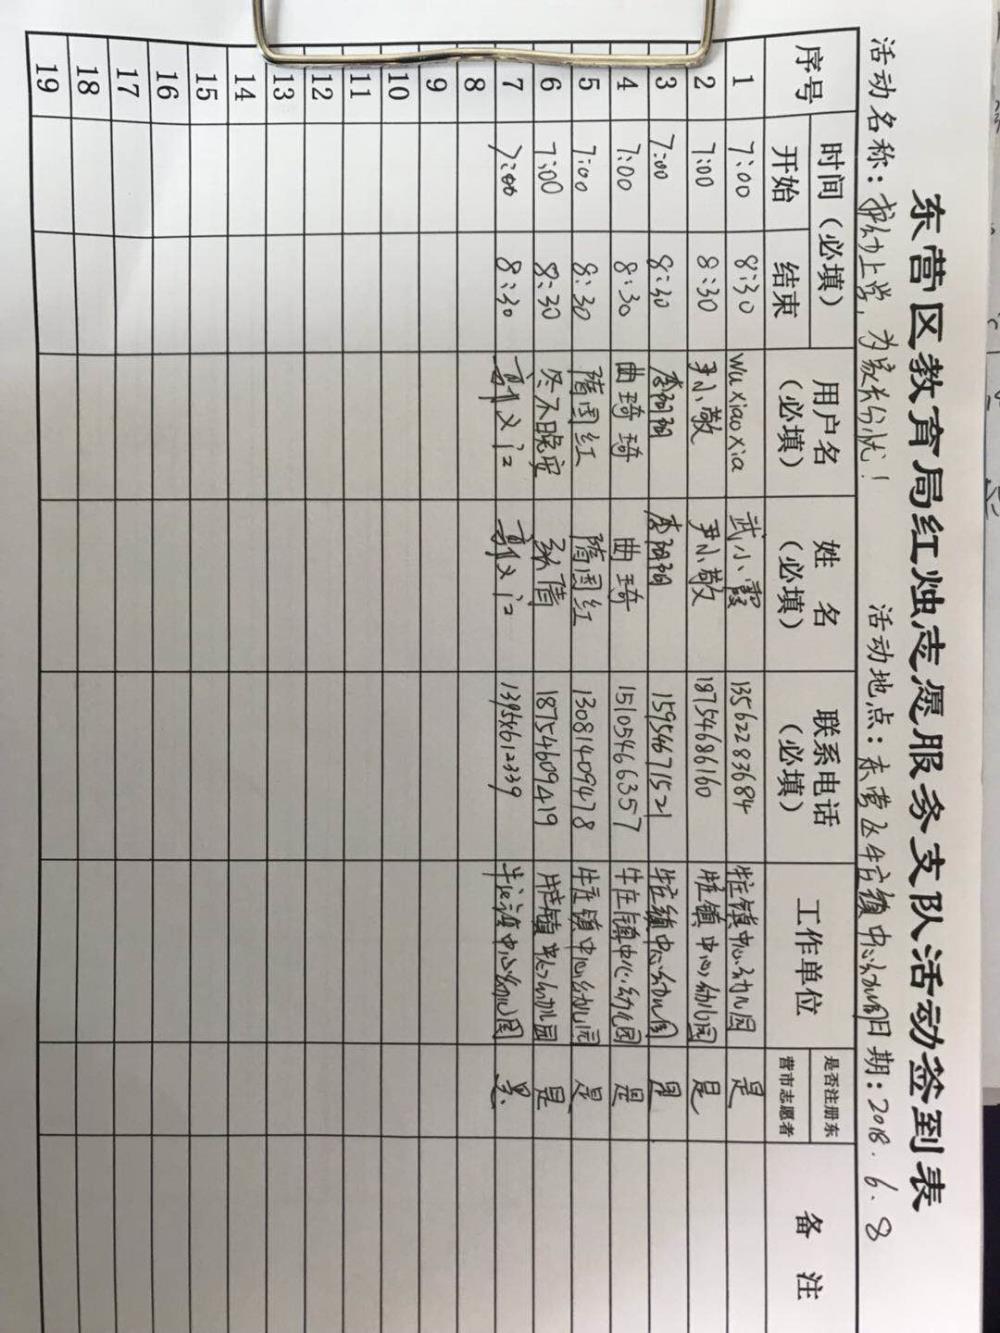 东营区教育局红烛志愿服务支队活动签到表
活动名称：护幼上学，为家长分忧！ 活动地点：东营区牛庄镇中心幼儿园 日期：2018.6.8
序号 时间（必填） 用户名（必填） 姓 名（必填） 联系电话（必填） 工作单位 是否注册东营市志愿者 备 注
开始 结束
1 7:00 8:30 wuxiaoxia 武小霞 13562283684 牛庄镇中心幼儿园 是
2 7:00 8:30 尹小敬 尹小敬 18754686160 牛庄镇中心幼儿园 是
3 7:00 8:30 15954671521 牛庄镇中心幼儿园 是
4 7:00 8:30 曲琦琦 曲琦 15105466357 牛庄镇中心幼儿园 是
5 7:00 8:30 隋国红 隋国红 13081409478 牛庄镇中心幼儿园 是
6 7:00 8:30 冬不晚安 18754609419 牛庄镇中心幼儿园 是
7 7:00 8:30 牛庄镇中心幼儿园 是
8
9
10
11
12
13
14
15
16
17
18
19